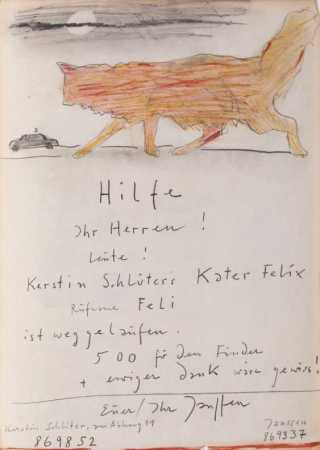 Hilfe
Ihr Herren!
Leute!
Kerstin Schlüter's Kater Felix
Rufname Feli
ist weggelaufen.
500 für den Finder
+ ewiger Dank wäre gewiss!
Euer/Ihr
Kerstin Schlüter,
869852
Janssen
869337